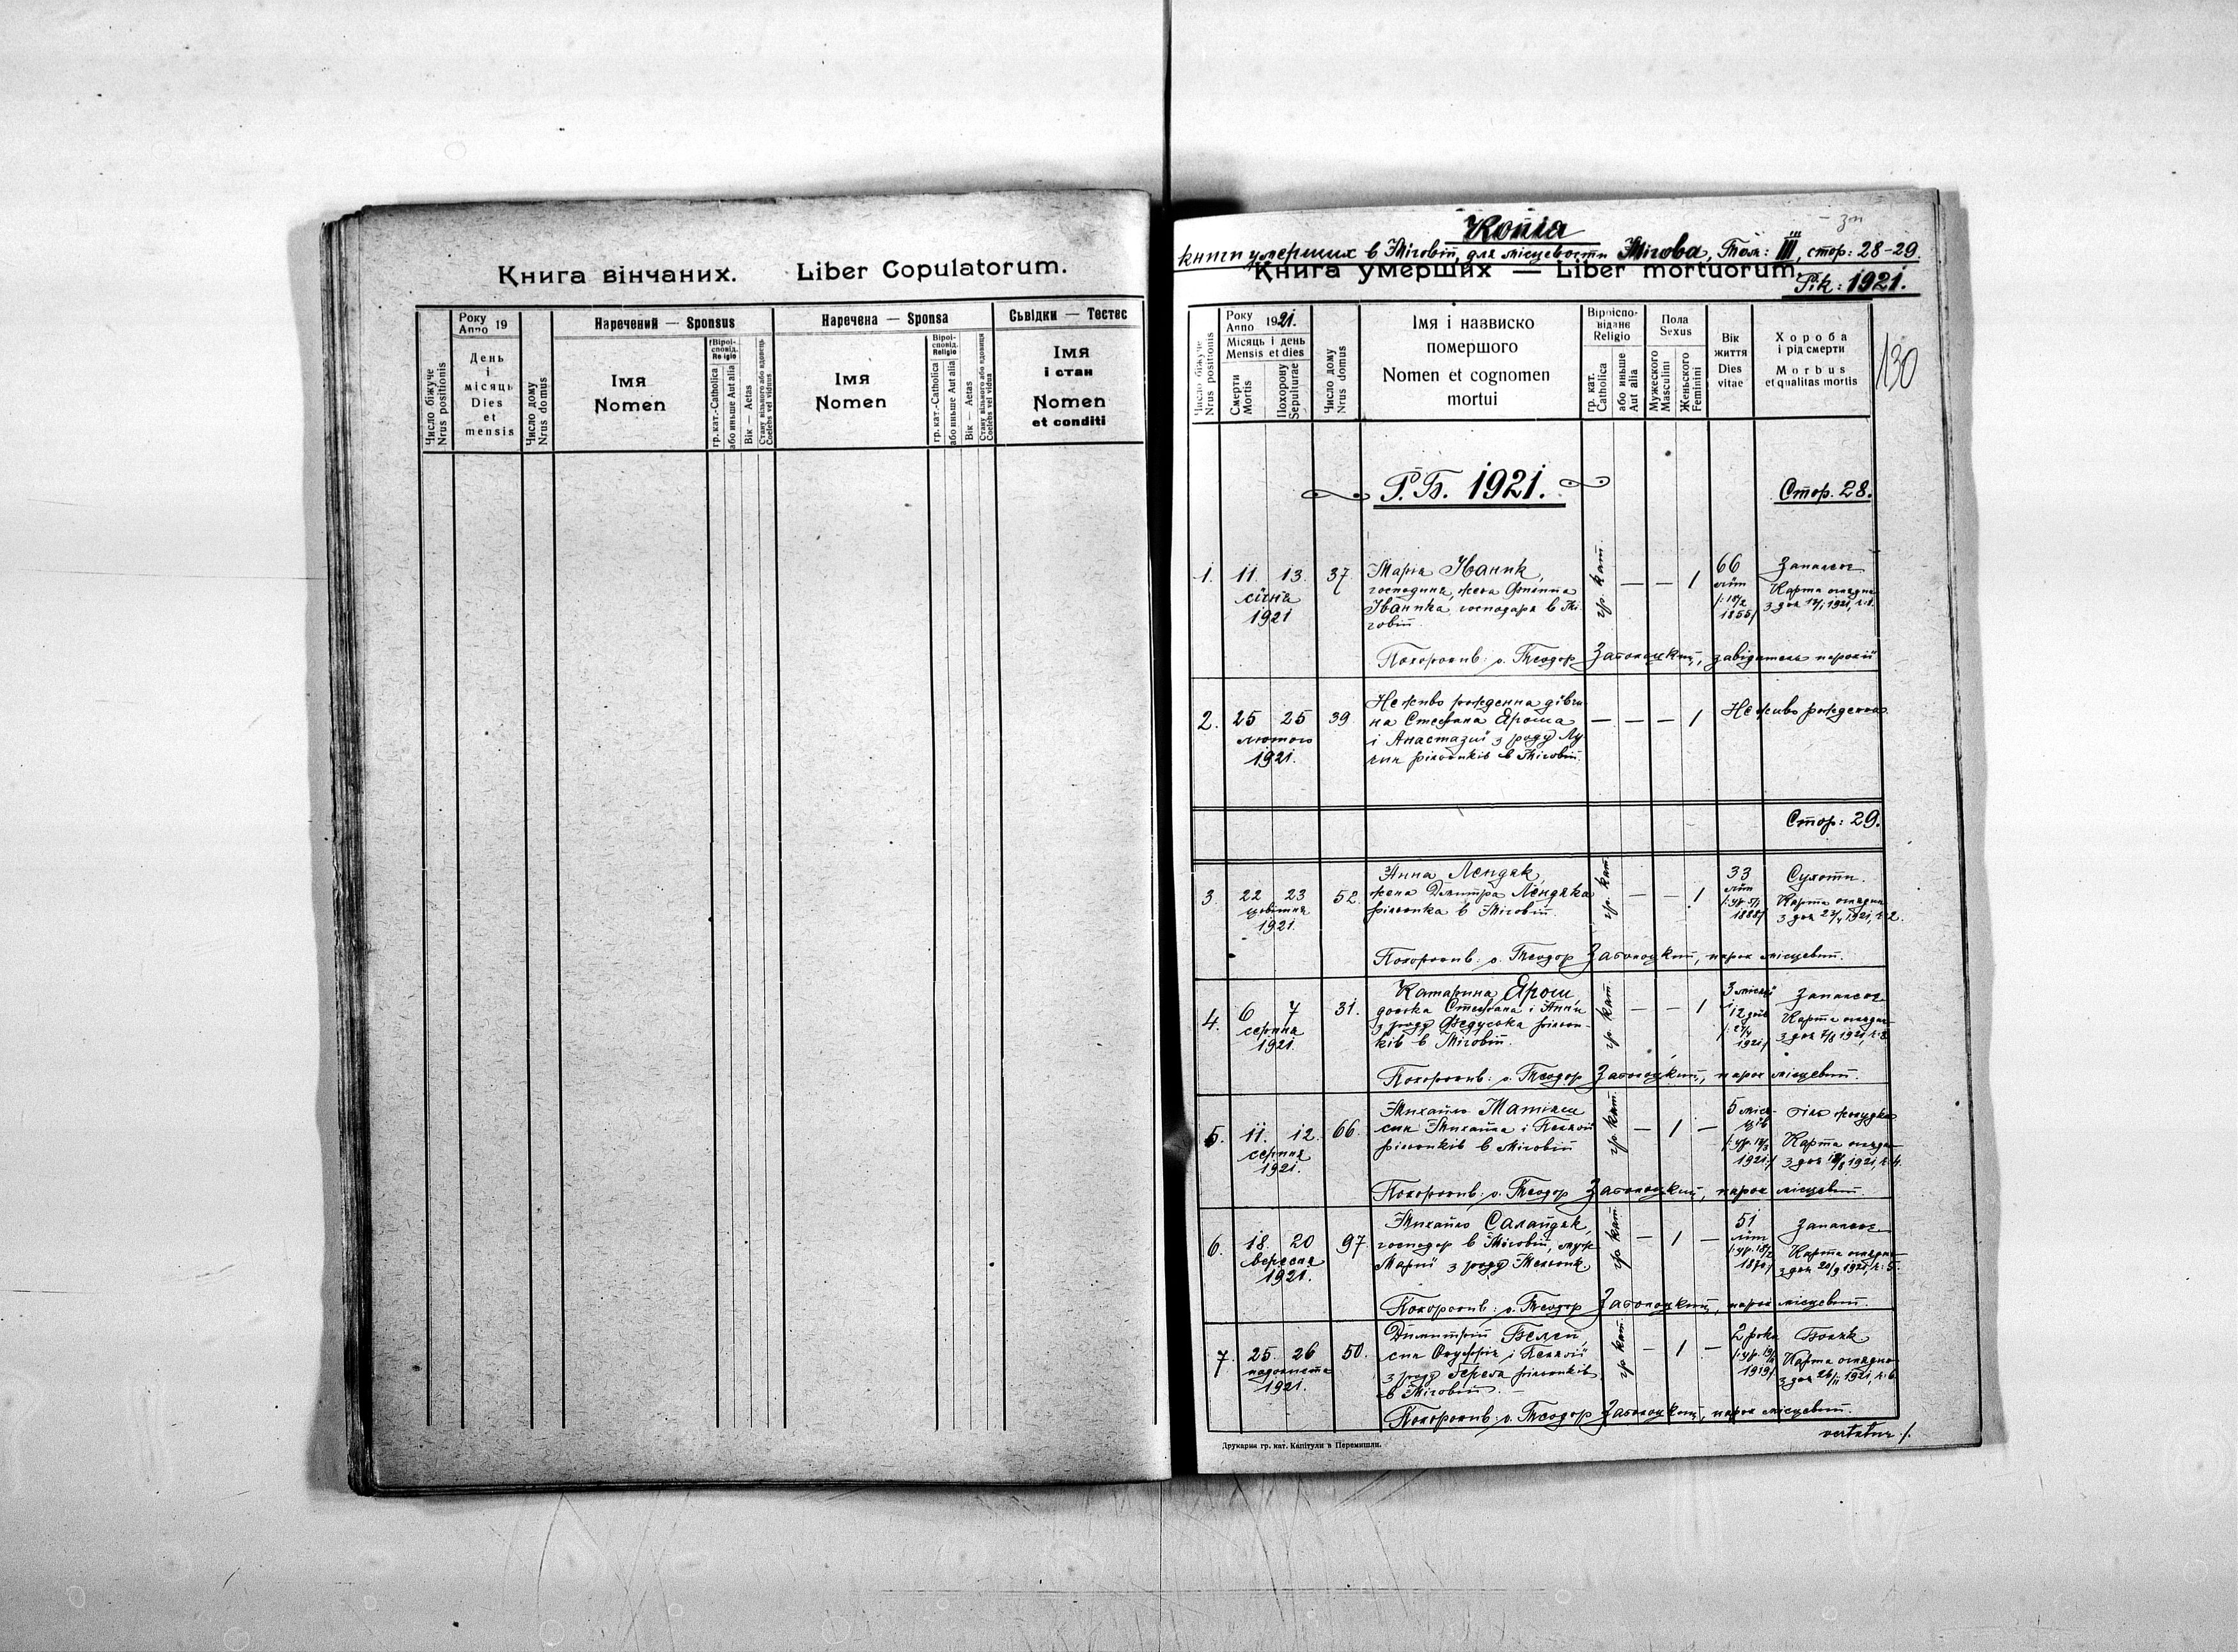 Книга вінчаних. Liber Copulatorum.
Число біжуче
Nrus positionis
Року
Anno 19
День
і
місяць
Dies
et
mensis
Число дому
Nrus domus
Наречений — Sponsus
Імя
Nomen
Віроі-
сповід.
Religio
гр. кат.-Catholica
або иньше Aut alia
Вік — Aetas
Стану вільного або вдовець
Coelebs vel viduus
Наречена — Sponsa
Імя
Nomen
Віроі-
сповід.
Religio
гр. кат.-Catholica
або иньше Aut alia
Вік — Aetas
Стану вільного або вдовиця
Coelebs vel vidua
Сьвідки — Тестес
Імя
і стан
Nomen
et conditi
Копіа
книги умерших в Міговій, для місцевости Мігова, Том: III, стор: 28-29.
Книга умерших — Liber mortuorum.
Рік: 1921.
130
Число біжуче
Nrus positionis
Року
Anno 1921.
Місяць і день
Mensis et dies
Смерти
Mortis
Похорону
Sepulturae
Число дому
Nrus domus
Імя і назвиско
помершого
Nomen et cognomen
mortui
Віроіспо-
відане
Religio
гр. кат.
Catholica
або иньше
Aut alia
Пола
Sexus
Мужеского
Masculini
Женьского
Feminini
Вік
життя
Dies
vitae
Хороба
і рід смерти
Morbus
et qualitas mortis
Р.Б. 1921.
Стор. 28.
1. 11. 13. 37.
січня
1921
Марія Іваник,
господиня, жена Филипа
Іваника, господаря в Мі-
говій.
гр. кат. — — 1
66
літ
1855
Запалєнє
Карта оглядин
Похоронив: о. Теодор Заболоцкий, завідатель парохії
2. 25 25 39.
лютого
1921.
Неживо рожденна дівчи
на Стефана Яроша
і Анастазиї з роду Лу
рільників в Міговій.
— — — 1
Неживо рожденна.
Стор: 29.
3. 22 23 52.
цвітня
1921.
Анна Лендяк,
жена Дмитра Лендяка
рільника в Міговій.
гр. кат. — — 1
33
літ
1888
Сухоти.
Карта оглядин
Похоронив: о. Теодор Заболоцкий, парох місцевий.
4. 6 7 31.
серпня
1921.
Катарина Ярош,
донька Стефана і Анни
з роду Федуська рільни-
ків в Міговій.
гр. кат. — — 1
3 місяці
і
12 днів
1921
Запалєнє
Карта оглядин
з дня 7/8 1921, ч: 3.
Похоронив: о. Теодор Заболоцкий, парох місцевий.
5. 11. 12. 66.
серпня
1921.
Михайло Матіяш
син Михайла і Пелагії
рільників в Міговій
гр. кат. — 1 —
5 міся-
ців
1921
біль жолудка
Карта оглядин
1921, ч: 4.
Похоронив: о. Теодор Заболоцкий, парох місцевий.
6. 18. 20 97.
вересня
1921.
Михайло Саландяк,
господар в Міговій, муж
Марії з роду
гр. кат. — 1 —
51
літ
1870
Запалєнє
Карта оглядин
з дня 20/9 1921, ч: 5.
Похоронив: о. Теодор Заболоцкий, парох місцевий.
7. 25. 26 50.
падолиста
1921.
Димитрій Белей,
син Онуфрія і Пелагії
з роду рільників
в Міговій.
гр. кат. — 1 —
2 роки
1919
Карта оглядин
з дня 26/11 1921, ч: 6.
Похоронив: о. Теодор Заболоцкий, парох місцевий.
vertatur ./.
Друкарня гр. кат. Капітули в Перемишли.